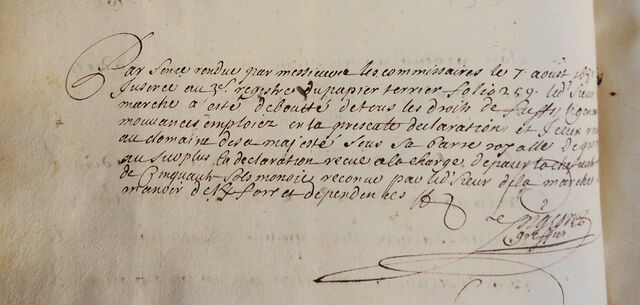 Par sence rendue par messieurs les commissaires le 7 aoust
Inseree au 3e registre du papier terrier folio 259 led. Sieur
marche a esté debouté de tous les droits de
mouvances emploiez en la presente declaration et Iceux
au domaine de sa majesté sous sa barre royalle de
au surplus la declaration receue a la charge de paier la
de Cinquante sols monoie reconue par led. Sieur de la marche
manoir de et dependences
greffier